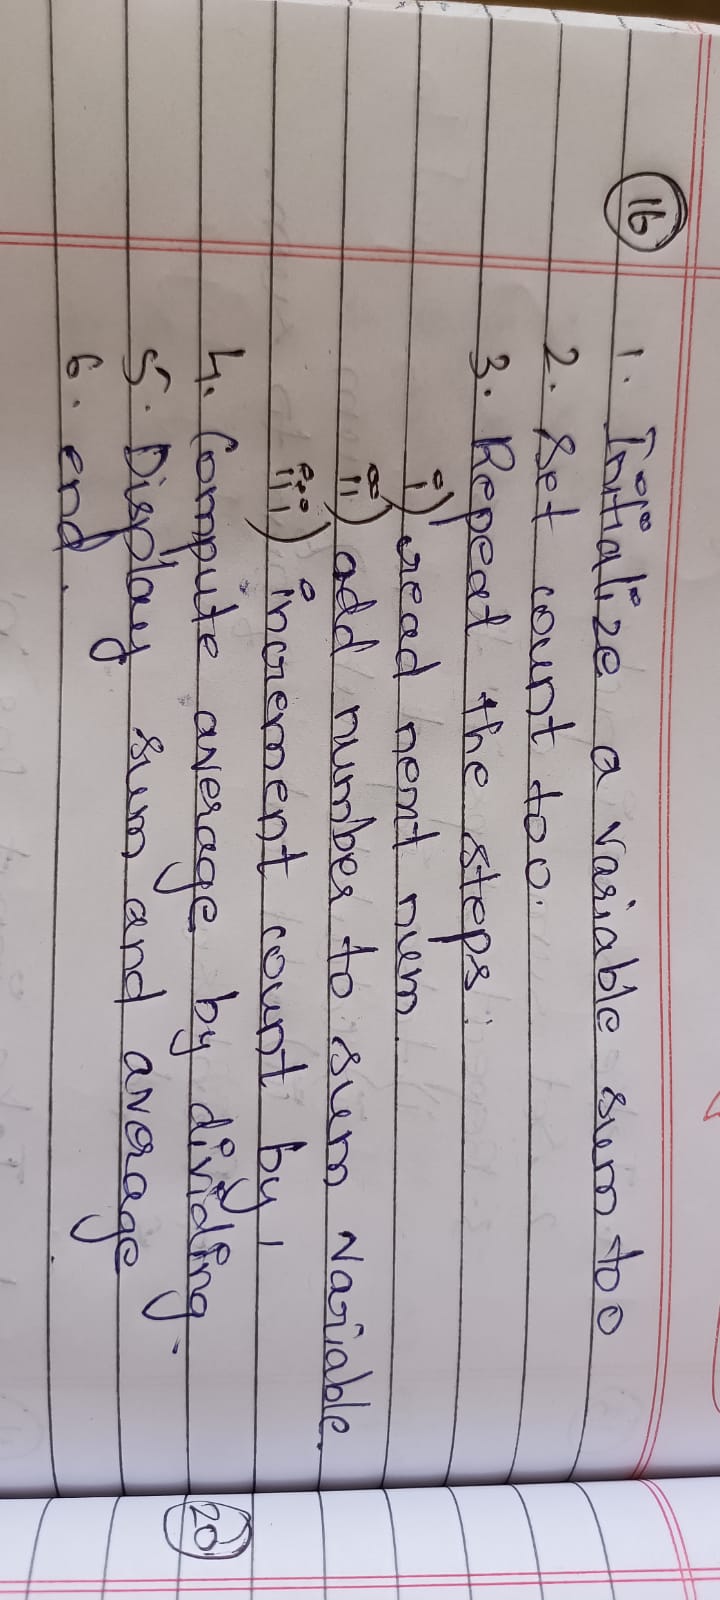 16
1. Initialize a variable sum to 0
2. Set count to 0.
3. Repeat the steps:
i) read next num.
ii) add number to sum variable.
iii) increment count by 1
4. Compute average by dividing.
5. Display sum and average
6. end.
20